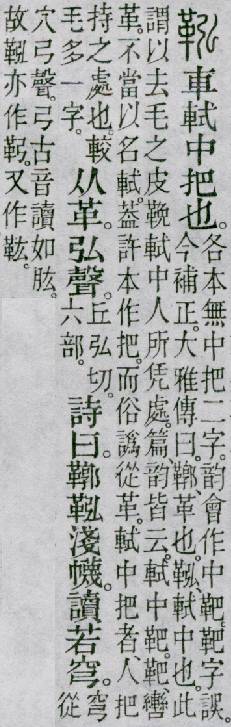 鞃 車軾中把也。各本無中把二字。韵會作中靶。靶字誤。
今補正。大雅傳曰。鞹、革也。鞃、軾中也。此
謂以去毛之皮鞔軾中人所凭處。篇韵皆云。軾中靶。靶、轡
革。不當以名軾。葢許本作把。而俗譌從革。軾中把者、人把
持之處也。較
毛多一字。
从革。弘聲。丘弘切。
六部。
詩曰。鞹鞃淺幭。讀若穹。穹
從
穴弓聲。弓古音讀如肱。
故鞃亦作。又作。